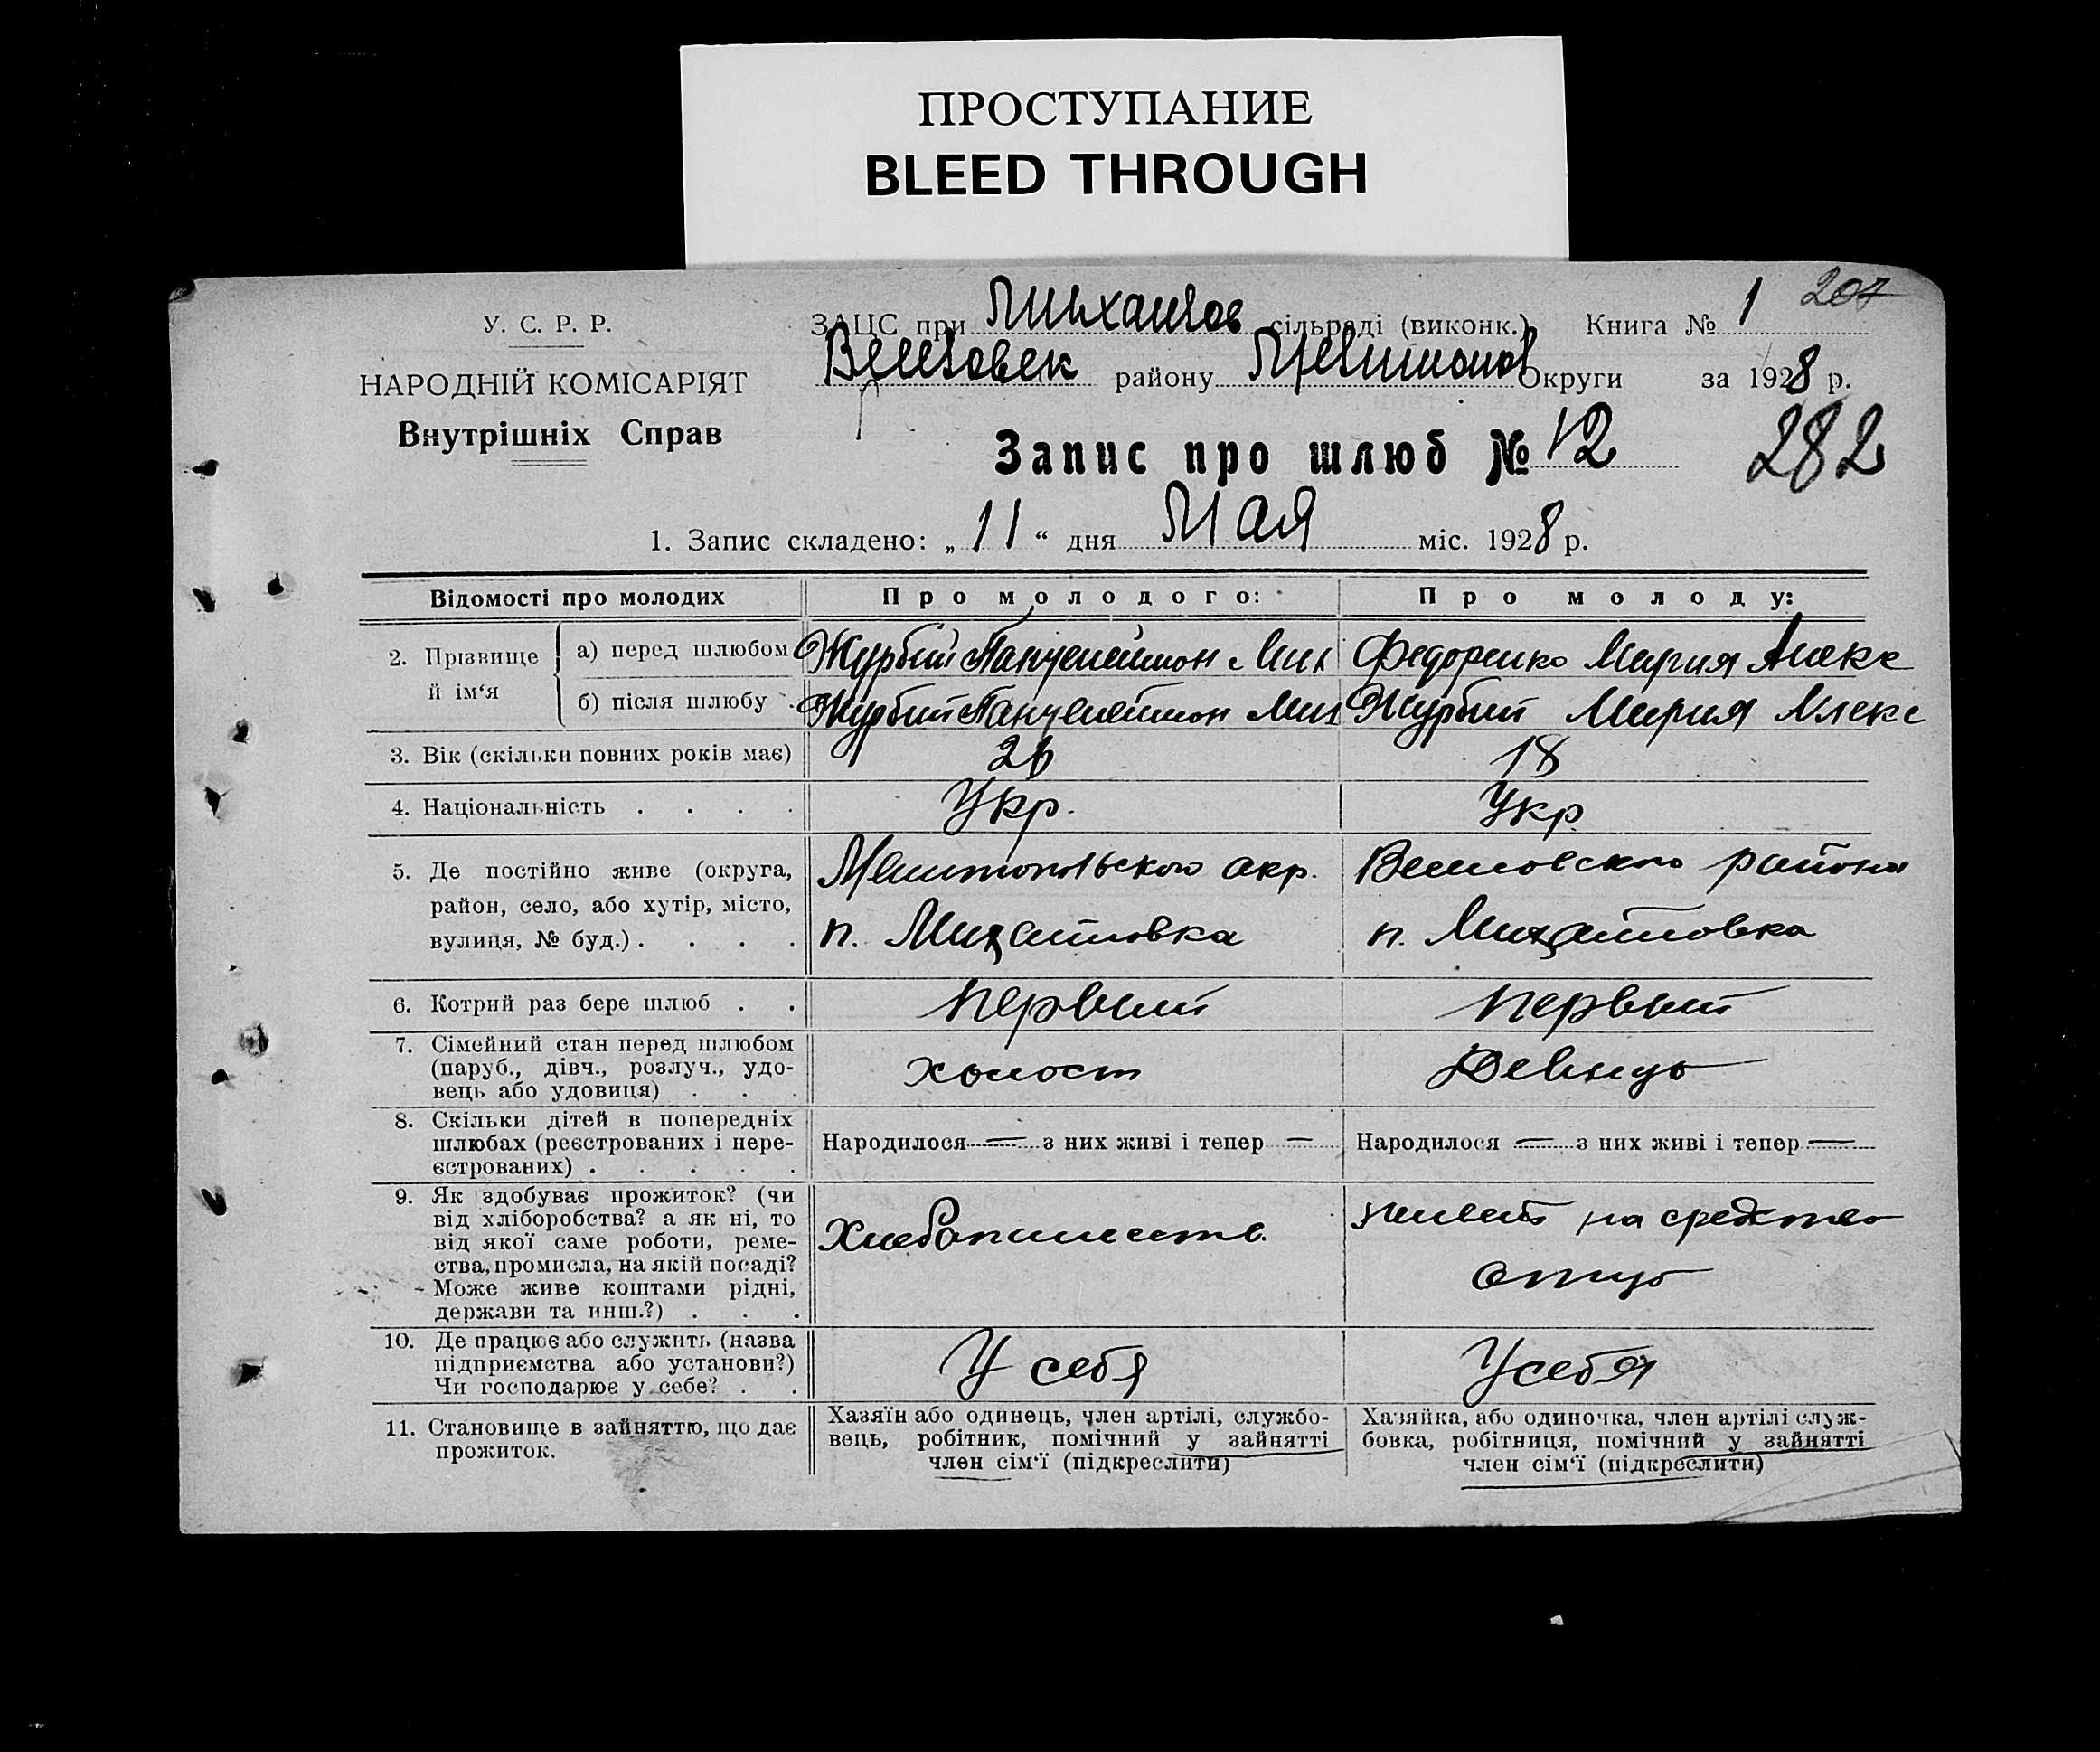 ПРОСТУПАНИЕ
BLEED THROUGH
У. С. Р. Р.
НАРОДНІЙ КОМІСАРІЯТ
Внутрішніх Справ
ЗАЦС при Михайлов сільраді (виконк.) Книга № 1 207
району Округи за 1928 р.
Запис про шлюб № 12 282
1. Запис складено: „11“ дня Мая міс. 1928 р.
Відомості про молодих
Про молодого:
Про молоду:
2. Прізвище й ім‘я
а) перед шлюбом
Журбий Мих
Федоренко Мария Алекс
б) після шлюбу
Журбий Мих
Журбий Мария Алекс
3. Вік (скільки повних років має)
26
18
4. Національність . . . .
Укр.
Укр.
5. Де постійно живе (округа,
район, село, або хутір, місто,
вулиця, № буд.) . . . .
Мелитопольского окр.
п. Михайловка
Веселовского района
п. Михайловка
6. Котрий раз бере шлюб . .
первый
первый
7. Сімейний стан перед шлюбом
(паруб., дівч., розлуч., удо-
вець або удовиця) . . .
холост
Девица
8. Скільки дітей в попередніх
шлюбах (реєстрованих і нере-
єстрованих) . . . . .
Народилося — з них живі і тепер —
Народилося — з них живі і тепер —
9. Як здобуває прожиток? (чи
від хліборобства? а як ні, то
від якої саме роботи, реме-
ства, промисла, на якій посаді?
Може живе коштами рідні,
держави та инш.?) . . .
на средства
отца
10. Де працює або служить (назва
підприємства або установи?)
Чи господарює у себе? . .
У себя
У себя
11. Становище в зайняттю, що дає
прожиток.
Хазяїн або одинець, член артілі, службо-
вець, робітник, помічний у зайнятті
член сім‘ї (підкреслити)
Хазяйка, або одиночка, член артілі служ-
бовка, робітниця, помічний у зайнятті
член сім‘ї (підкреслити)